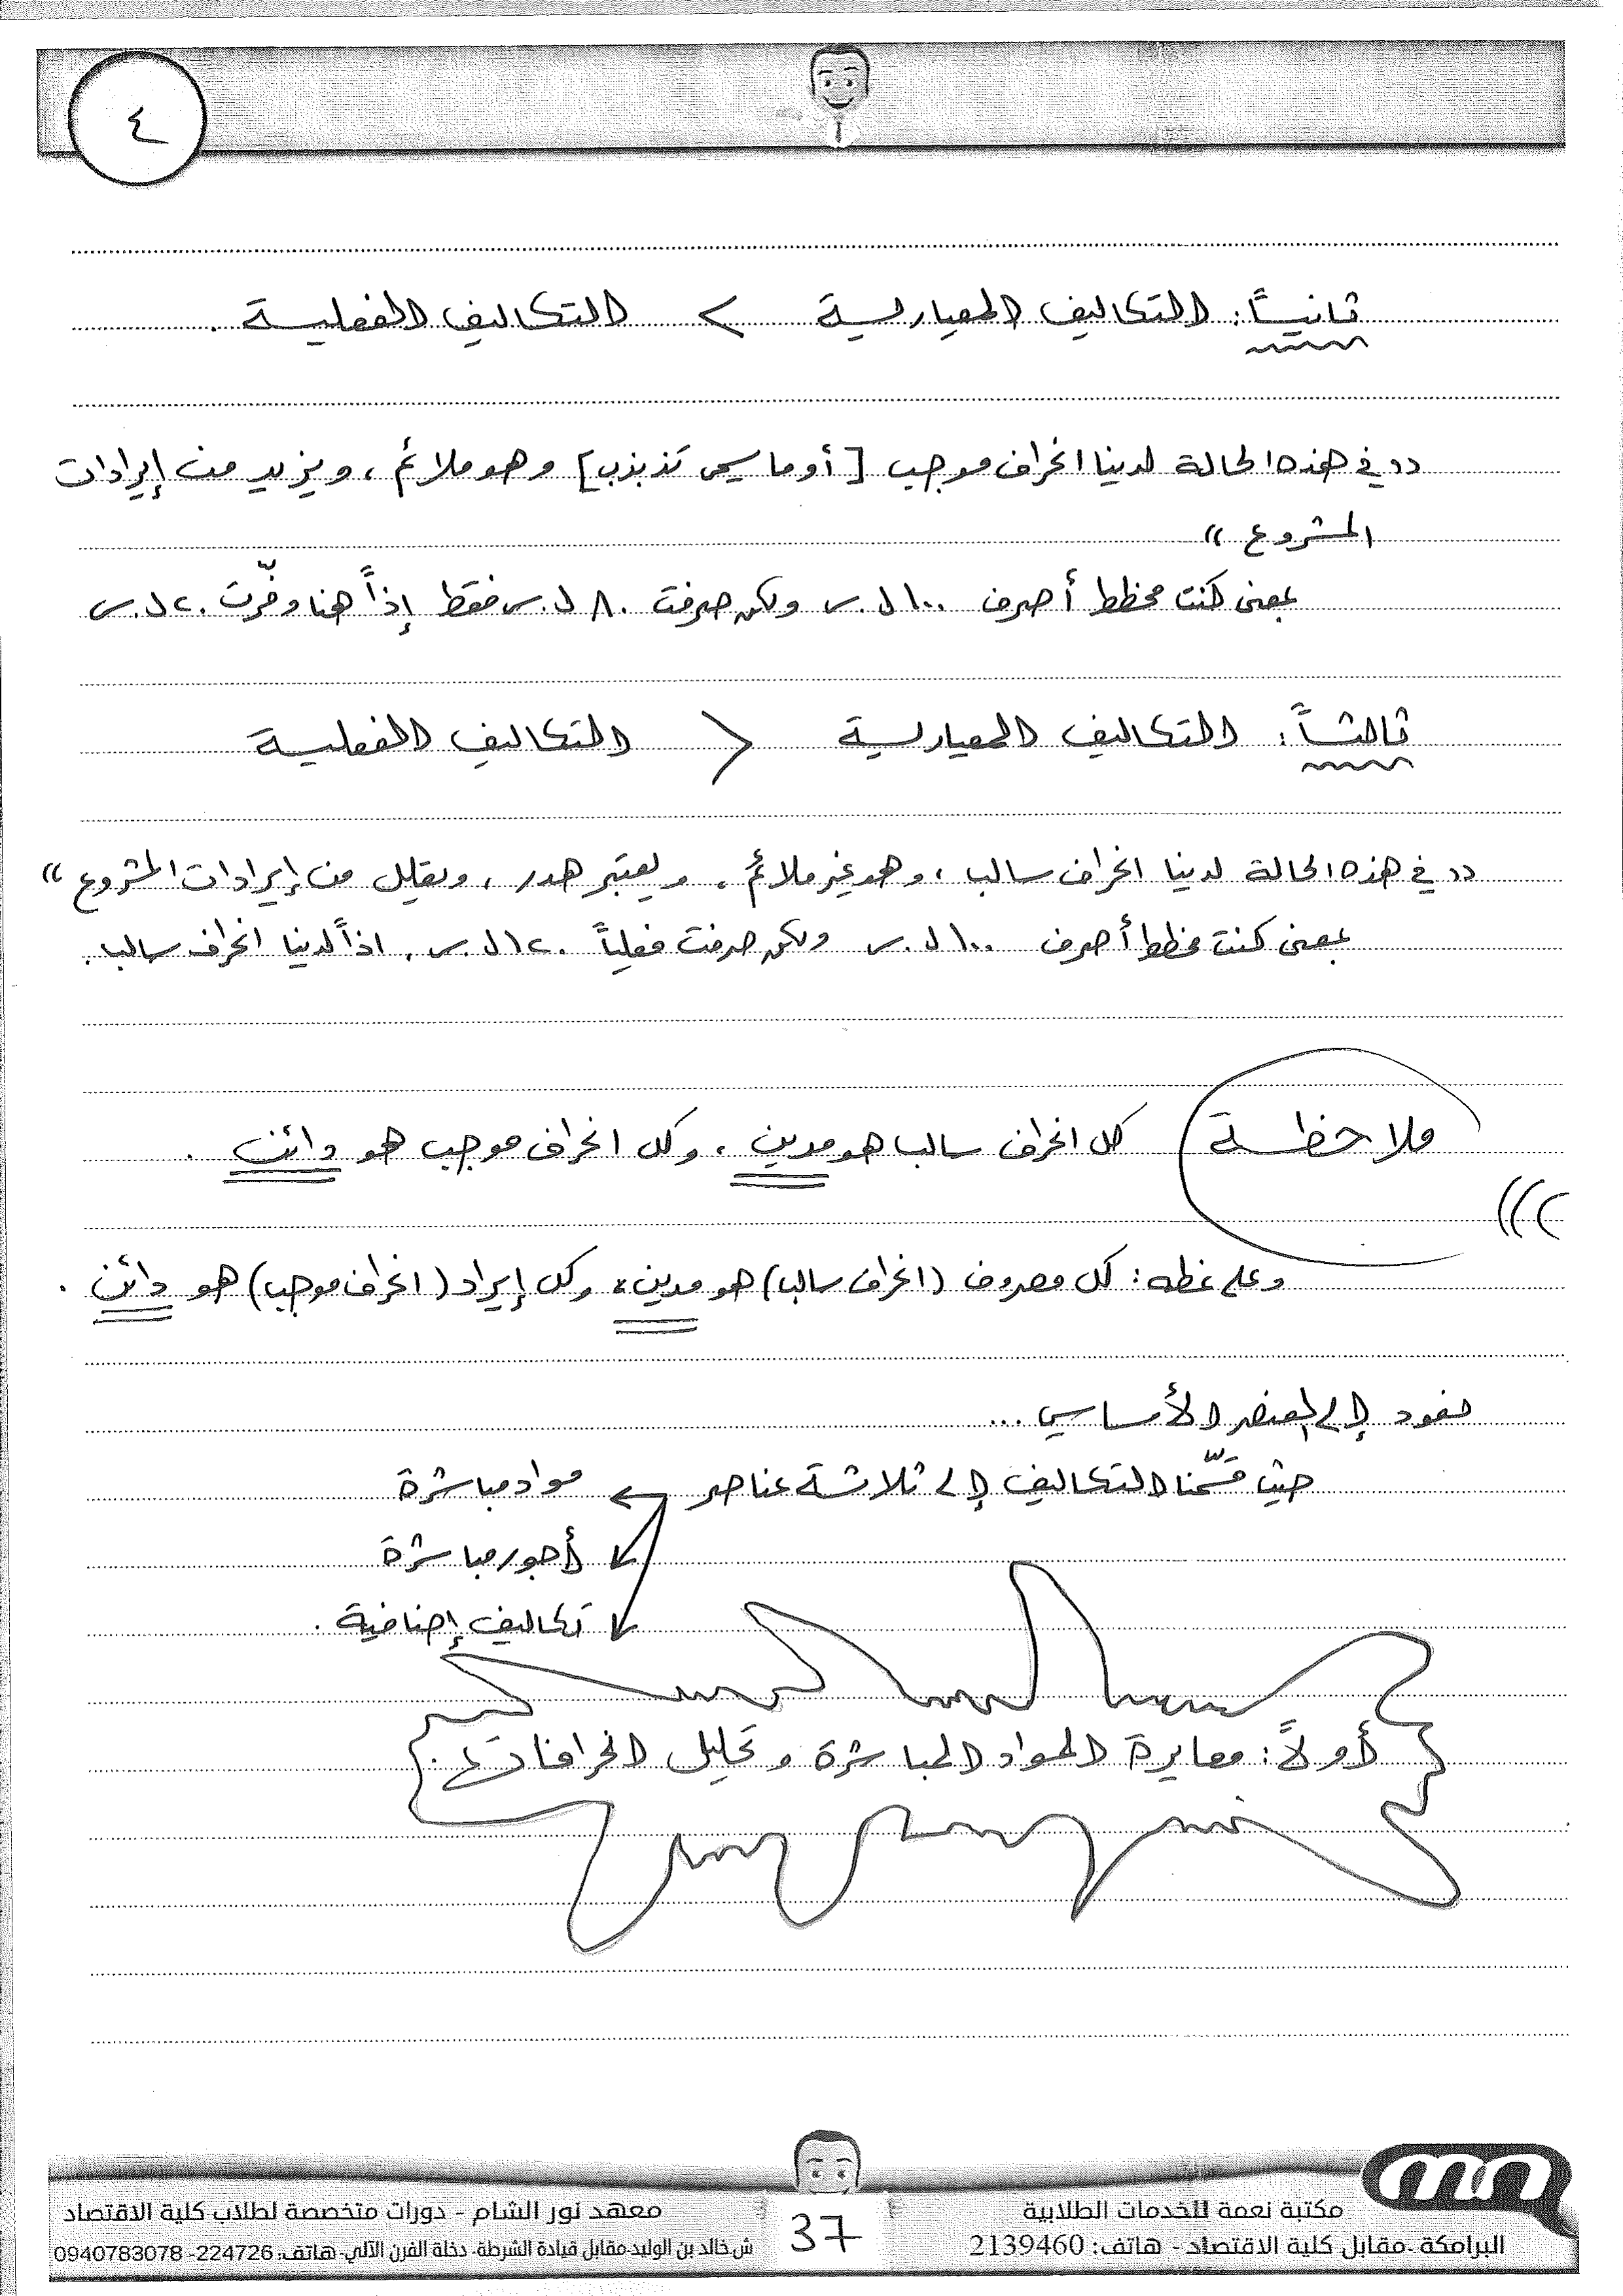 ٤
ثانياً: التكاليف المعيارية > التكاليف الفعلية .
(( في هذه الحالة لدينا انحراف موجب [أو ما يسمى تذبذب] وهو ملائم ، ويزيد من إيرادات
المشروع ))
بمعنى كنت مخطط أصرف ١٠٠ ل.س ولكن صرفت ٨٠ ل.س فقط إذاً هنا وفّرت ٢٠ ل.س
ثالثاً: التكاليف المعيارية < التكاليف الفعلية
(( في هذه الحالة لدينا انحراف سالب ، وهو غير ملائم ، ويعتبر هدر ، ويقلل من إيرادات المشروع ))
بمعنى كنت مخطط أصرف ١٠٠ ل.س ولكن صرفت فعلياً ١٢٠ ل.س . اذاً لدينا انحراف سالب .
ملاحظة كل انحراف سالب هو مدين ، وكل انحراف موجب هو دائن .
وعلى نمطه : كل مصروف (انحراف سالب) هو مدين ، وكل إيراد (انحراف موجب) هو دائن .
نعود إلى العنصر الأساسي ...
حيث قسّمنا التكاليف إلى ثلاثة عناصر ← مواد مباشرة
أجور مباشرة
تكاليف إضافية .
أولاً : معايرة المواد المباشرة وتحليل انحرافاتها .
مكتبة نعمة للخدمات الطلابية
البرامكة -مقابل كلية الاقتصاد - هاتف: 2139460
37
معهد نور الشام - دورات متخصصة لطلاب كلية الاقتصاد
ش.خالد بن الوليد-مقابل قيادة الشرطة- دخلة الفرن الآلي- هاتف: 224726- 0940783078